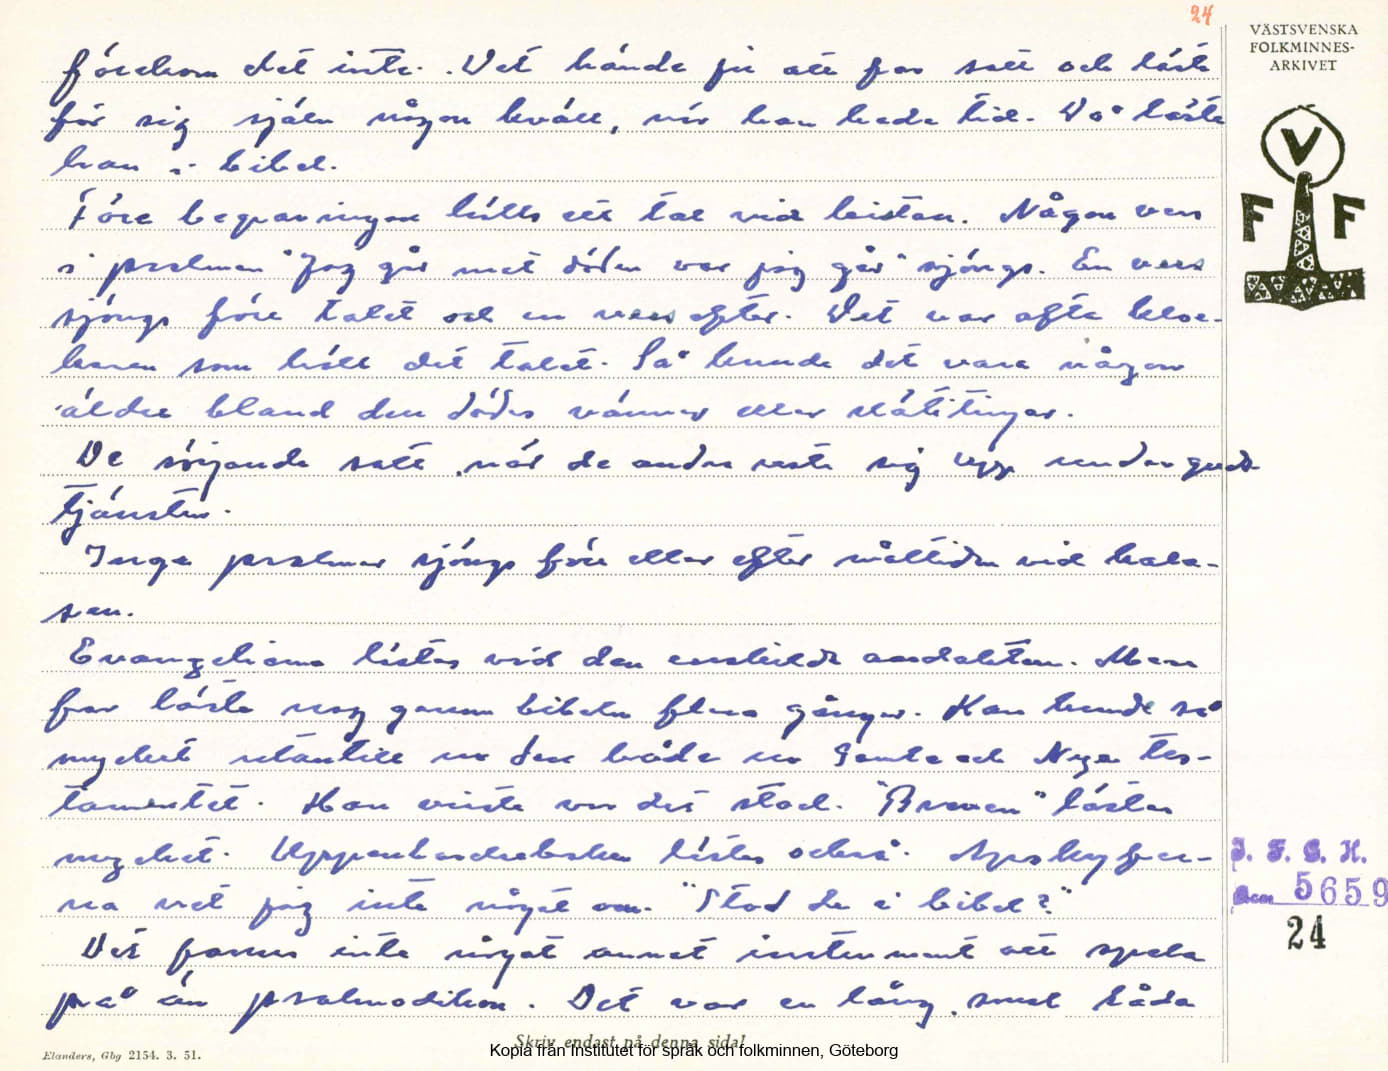 24
VÄSTSVENSKA
FOLKMINNES-
ARKIVET
V
F F
förekom det inte. Det hände ju att far satt och läste
för sig själv någon kväll, när han hade tid. Då läste
han i bibel.
Före begravningen hölls ett tal vid kistan. Någon vers
i psalmen "Jag går mot döden var jag går" sjöngs. En vers
sjöngs före talet och en vers efter. Det var ofta kloc-
karen som höll det talet. Så kunde det vara någon
äldre bland den dödes vänner eller släktingar.
De sörjande satt, när de andra reste sig upp under guds-
tjänsten.
Inga psalmer sjöngs före eller efter måltiden vid kala-
sen.
Evangelierna lästes vid den enskilda andakten. Men
far läste nog genom bibeln flera gånger. Han kunde så
mycket utantill ur den både ur Gamla och Nya Tes-
tamentet. Han visste var det stod. "Breven" lästes
mycket. Uppenbarelseboken lästes också. Apokryfer-
na vet jag inte något om. "Stod de i bibel?"
Det fanns inte något annat instrument att spela
på än psalmodikon. Det var en lång, smal låda
J. F. G. H.
Acc 5659
24
Skriv endast på denna sida!
Kopia från Institutet för språk och folkminnen, Göteborg
Elanders, Gbg 2154. 3. 51.